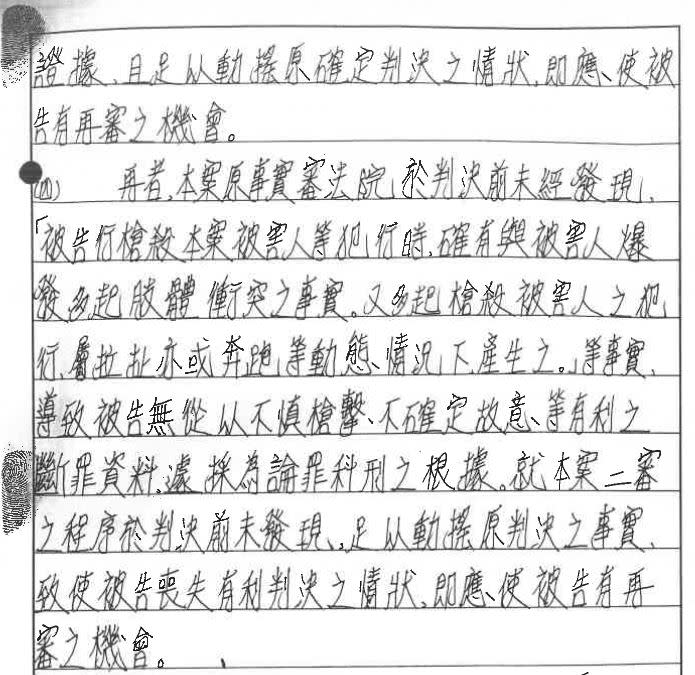 證據，且足以動搖原確定判決之情狀，即應、使被
告有再審之機會。
(四) 再者，本案原事實審法院，於判決前未經發現，
「被告行槍殺本案被害人等犯行時，確有與被害人爆
發多起肢體衝突之事實。又多起槍殺被害人之犯
行，屬拉扯亦或奔跑等動態、情況下產生之。等事實，
導致被告無從以不慎槍擊、不確定故意、等有利之
斷罪資料，遽採為論罪科刑之根據。就本案二審
之程序於判決前未發現，足以動搖原判決之事實，
致使被告喪失有利判決之情狀，即應、使被告有再
審之機會。、